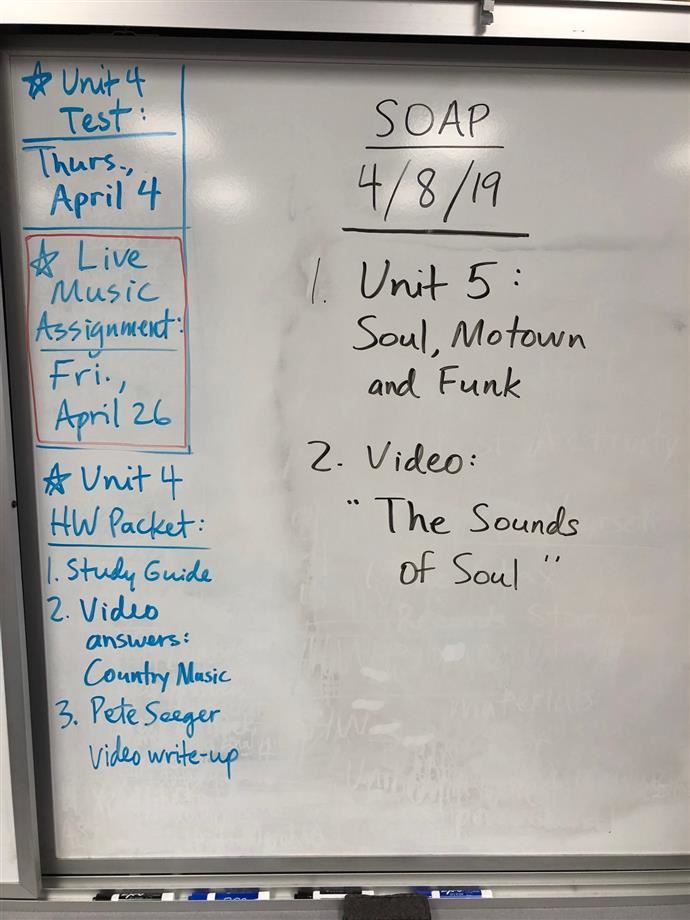 ☆ Unit 4
Test:
Thurs.,
April 4
☆ Live
Music
Assignment:
Fri.,
April 26
☆ Unit 4
HW Packet:
1. Study Guide
2. Video
answers:
Country Music
3. Pete Seeger
Video write-up
SOAP
4/8/19
1. Unit 5:
Soul, Motown
and Funk
2. Video:
"The Sounds
of Soul"